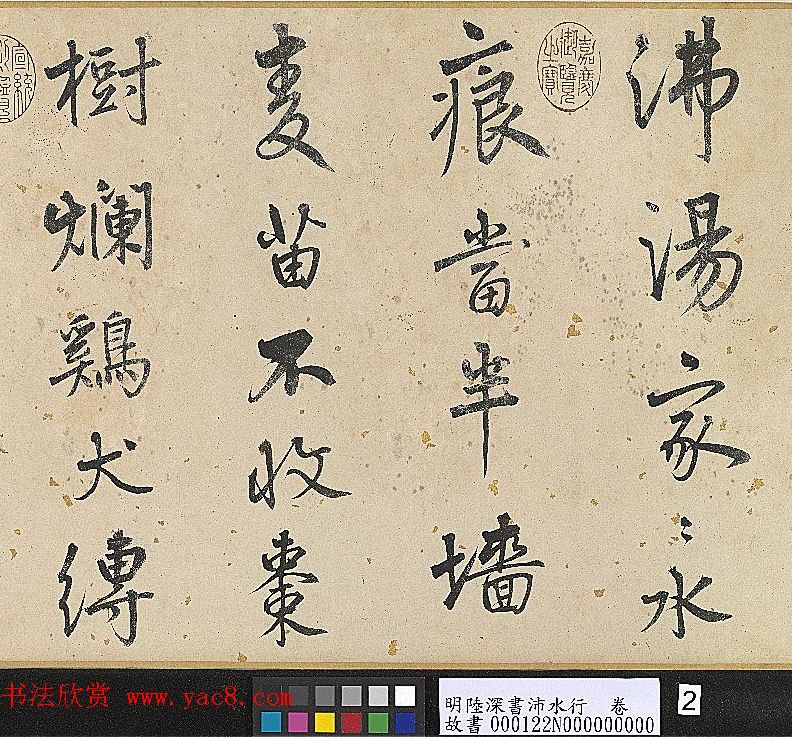 沸湯家〻水
痕當半墻
麦苗不收棗
樹爛鷄犬縛
嘉慶御覽之寶
书法欣赏 www.yac8.com
明陸深書沛水行 卷
故書000122N000000000
2